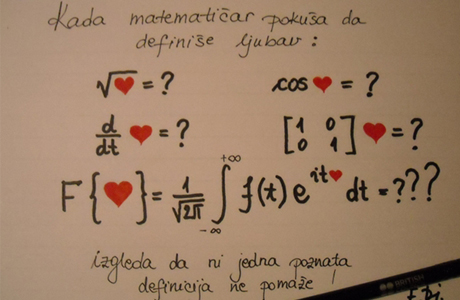 Kada matematičar pokuša da
definiše ljubav:
√♥ = ? cos ♥ = ?
d/dt ♥ = ? [1 0 0 1] ♥ = ?
F{♥} = 1/√2π ∫ +∞ -∞ f(t) e^it♥ dt = ???
izgleda da ni jedna poznata
definicija ne pomaže!